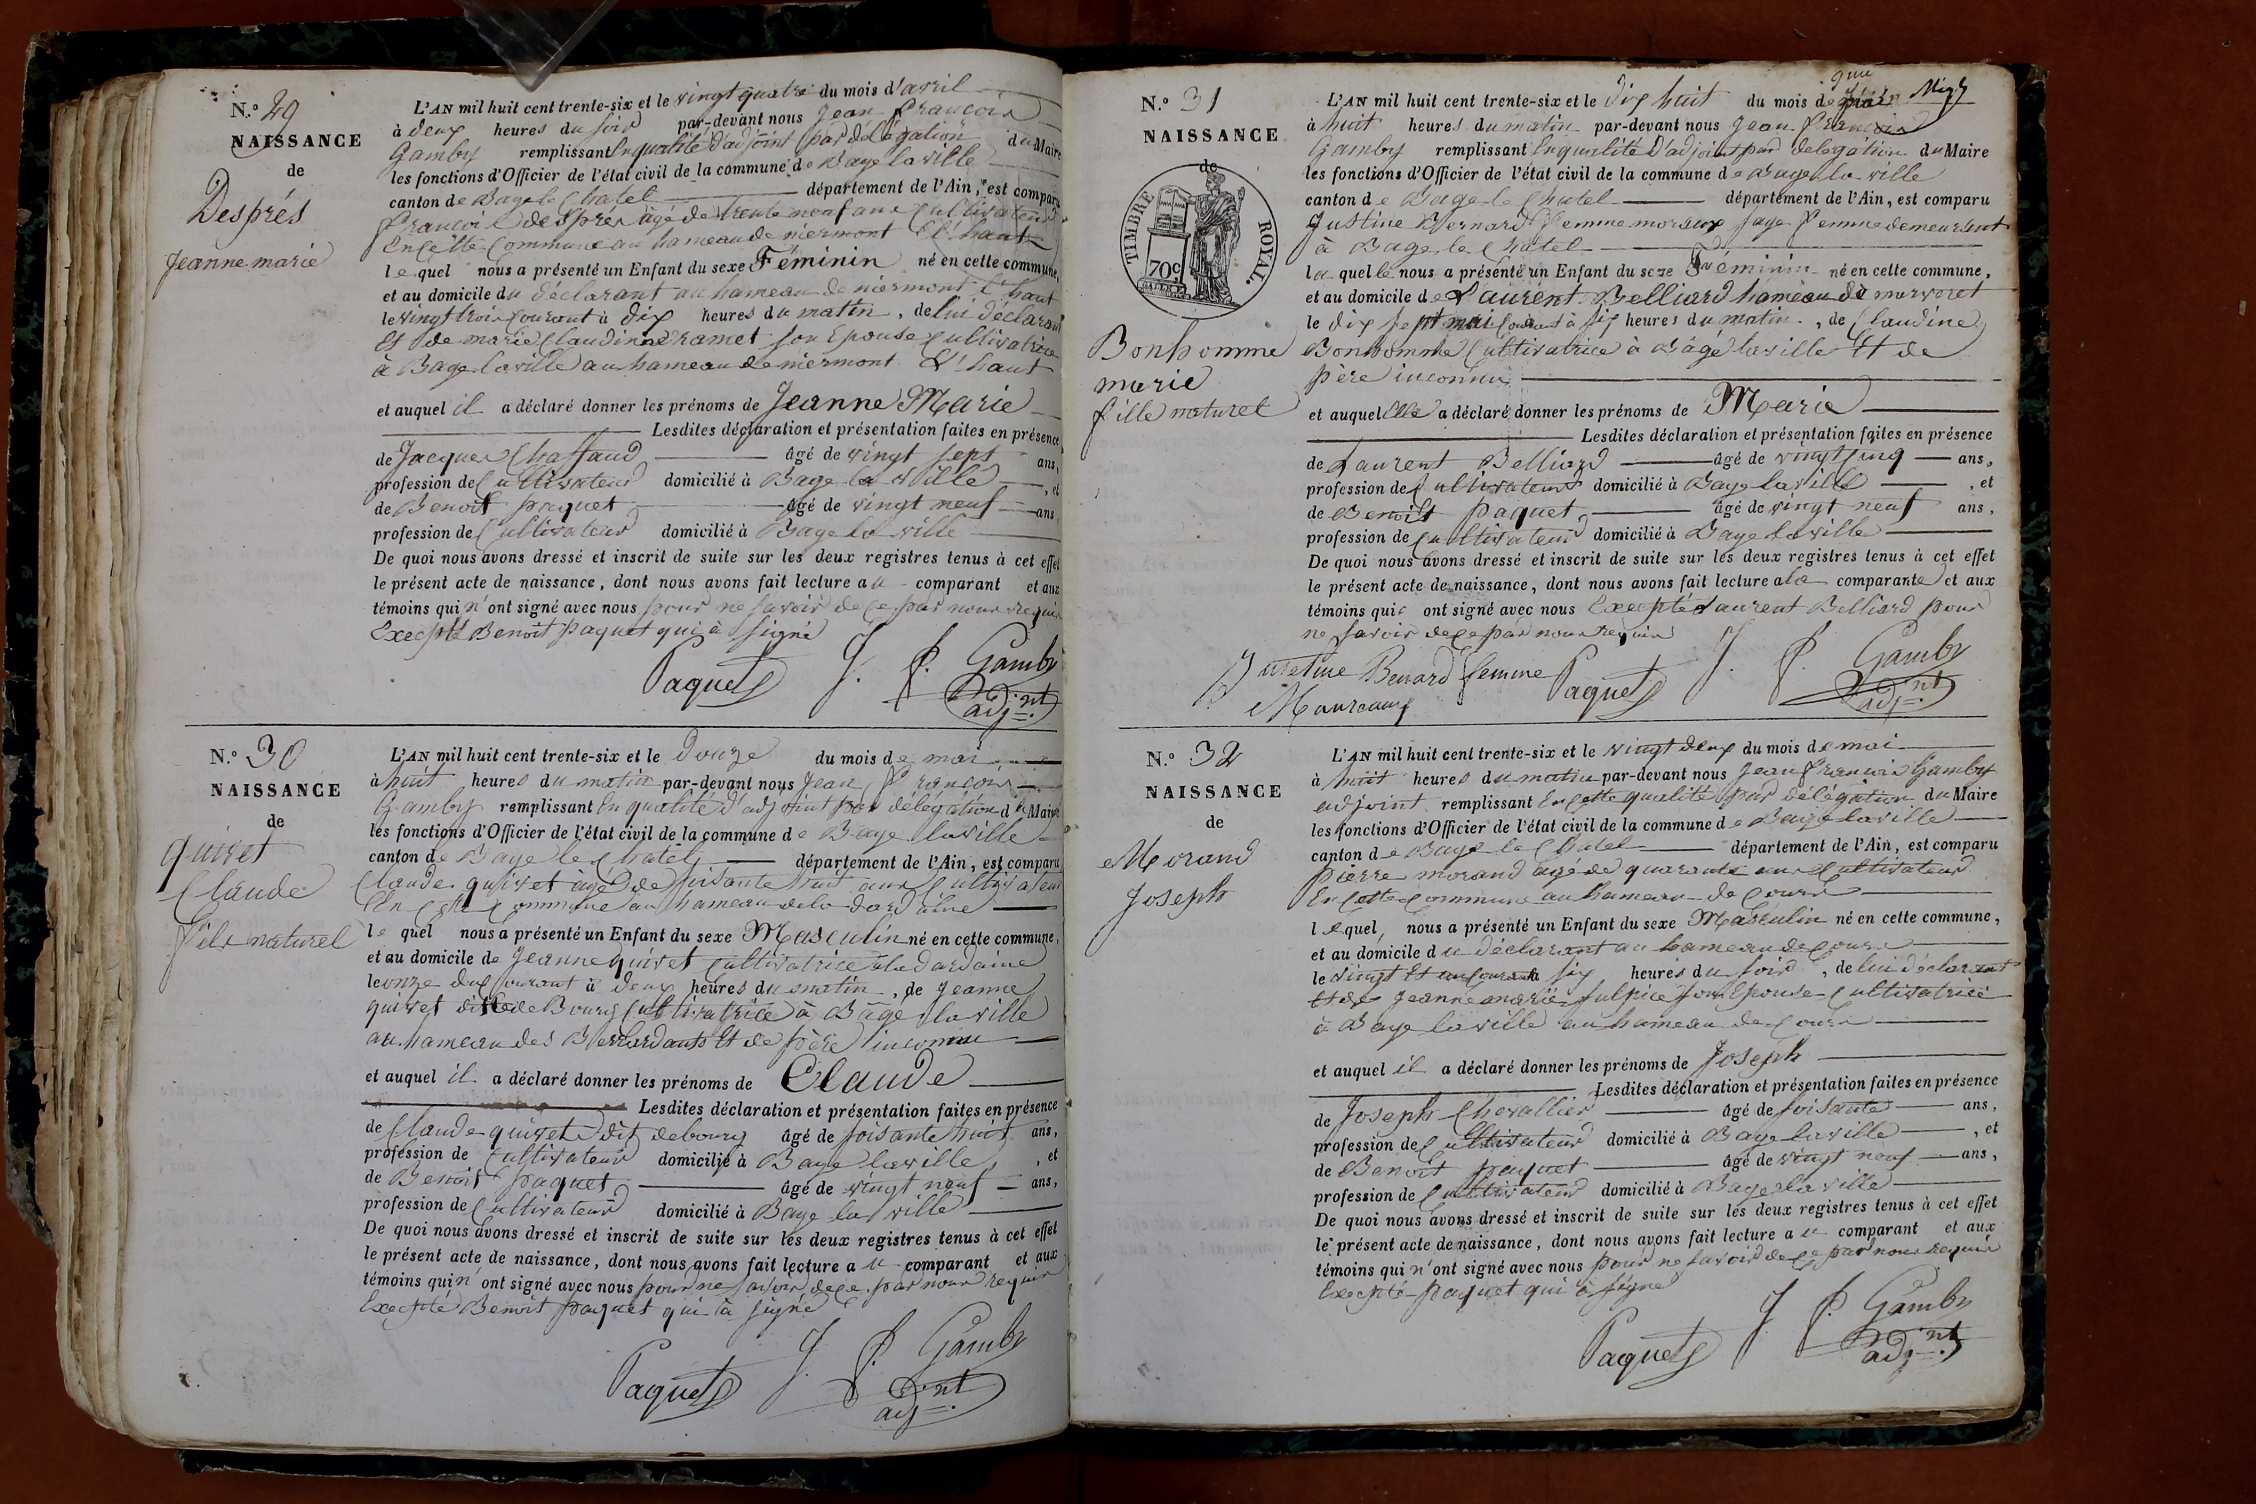 N.° 29
NAISSANCE
de
Després
Jeanne marie
L'AN mil huit cent trente-six et le vingt quatre du mois d'avril
à deux heures du soir par-devant nous Jean François
Gamby remplissant En qualité d'adjoint par délégation du Maire
les fonctions d'Officier de l'état civil de la commune de Bage la ville
canton de Bage le Chatel département de l'Ain, est comparu
François després âgé de trente neuf ans Cultivateur
En cette Commune au hameau de niermont
lequel nous a présenté un Enfant du sexe Féminin né en cette commune,
et au domicile du déclarant au hameau de niermont
le vingt trois Courant à dix heures du matin, de lui déclarant
Et de marie Claudine son Epouse Cultivatrice
à Bage la ville au hameau de niermont
et auquel il a déclaré donner les prénoms de Jeanne Marie
Lesdites déclaration et présentation faites en présence
de Jacques Chaffaud âgé de vingt sept ans,
profession de Cultivateur domicilié à Bage la Ville, et
de Benoit paquet âgé de vingt neuf ans
profession de Cultivateur domicilié à Bage la ville
De quoi nous avons dressé et inscrit de suite sur les deux registres tenus à cet effet
le présent acte de naissance, dont nous avons fait lecture au comparant et aux
témoins qui n'ont signé avec nous pour ne savoir de ce par nous requis
Excepté Benoit paquet qui à signé
Paquet J. F. Gamby
adj.nt
N.° 30
NAISSANCE
de
quivet
Claude
fils naturel
L'AN mil huit cent trente-six et le douze du mois de mai
à huit heures du matin par-devant nous Jean François
Gamby remplissant En qualité d'adjoint par délégation du Maire
les fonctions d'Officier de l'état civil de la commune de Bage la ville
canton de Bage le Chatel département de l'Ain, est comparu
Claude quivet âgé de soisante huit ans Cultivateur
En cette Commune au hameau de la dardaine
lequel nous a présenté un Enfant du sexe Masculin né en cette commune,
et au domicile de Jeanne quivet Cultivatrice à la dardaine
le onze du Courant à deux heures du matin, de Jeanne
quivet dite de Bourg Cultivatrice à Bâgé la ville
au hameau des Et de père inconnu
et auquel il a déclaré donner les prénoms de Claude
Lesdites déclaration et présentation faites en présence
de Claude quivet dit debourg âgé de soisante huit ans,
profession de Cultivateur domicilié à Bage la ville, et
de Benoit paquet âgé de vingt neuf ans,
profession de Cultivateur domicilié à Bage la ville
De quoi nous avons dressé et inscrit de suite sur les deux registres tenus à cet effet
le présent acte de naissance, dont nous avons fait lecture au comparant et aux
témoins qui n'ont signé avec nous pour ne savoir de ce par nous requis
Excepté Benoit paquet qui à signé
Paquet J. F. Gamby
adj.nt
N.° 31
NAISSANCE
de
TIMBRE ROYAL.
70c
Bonhomme
marie
fille naturel
L'AN mil huit cent trente-six et le dix huit du mois de
à huit heures du matin par-devant nous Jean François
Gamby remplissant En qualité d'adjoint par délégation du Maire
les fonctions d'Officier de l'état civil de la commune de Bage la ville
canton de Bage le Chatel département de l'Ain, est comparu
Justine Bernard femme sage femme demeurant
à Bage le Chatel
laquelle nous a présenté un Enfant du sexe Féminin né en cette commune,
et au domicile de Laurent Belliard hameau de
le dix sept mai Courant à six heures du matin, de Claudine
Bonhomme Cultivatrice à Bâgé la ville Et de
père inconnu
et auquel Elle a déclaré donner les prénoms de Marie
Lesdites déclaration et présentation faites en présence
de Laurent Belliard âgé de vingt cinq ans,
profession de Cultivateur domicilié à Bage la ville, et
de Benoit paquet âgé de vingt neuf ans,
profession de Cultivateur domicilié à Bage la ville
De quoi nous avons dressé et inscrit de suite sur les deux registres tenus à cet effet
le présent acte de naissance, dont nous avons fait lecture a la comparante et aux
témoins qui ont signé avec nous Excepté Laurent Belliard pour
ne savoir de ce par nous requis
Benard femme Paquet J. F. Gamby
adj.nt
N.° 32
NAISSANCE
de
Morand
Joseph
L'AN mil huit cent trente-six et le vingt deux du mois de mai
à huit heures du matin par-devant nous Jean François Gamby
adjoint remplissant En cette qualité par délégation du Maire
les fonctions d'Officier de l'état civil de la commune de Bage la ville
canton de Bage le Chatel département de l'Ain, est comparu
pierre morand âgé de quarante ans Cultivateur
En cette Commune au hameau de
lequel nous a présenté un Enfant du sexe Masculin né en cette commune,
et au domicile du déclarant au hameau de
le vingt Et un Courant à six heures du soir, de lui déclarant
Et de Jeanne marie sulpice son Epouse Cultivatrice
à Bage la ville au hameau de
et auquel il a déclaré donner les prénoms de Joseph
Lesdites déclaration et présentation faites en présence
de Joseph Chevallier âgé de soisante ans,
profession de Cultivateur domicilié à Bage la ville, et
de Benoit paquet âgé de vingt neuf ans,
profession de Cultivateur domicilié à Bage la ville
De quoi nous avons dressé et inscrit de suite sur les deux registres tenus à cet effet
le présent acte de naissance, dont nous avons fait lecture au comparant et aux
témoins qui n'ont signé avec nous pour ne savoir de ce par nous requis
Excepté paquet qui à signé
Paquet J. F. Gamby
adj.nt